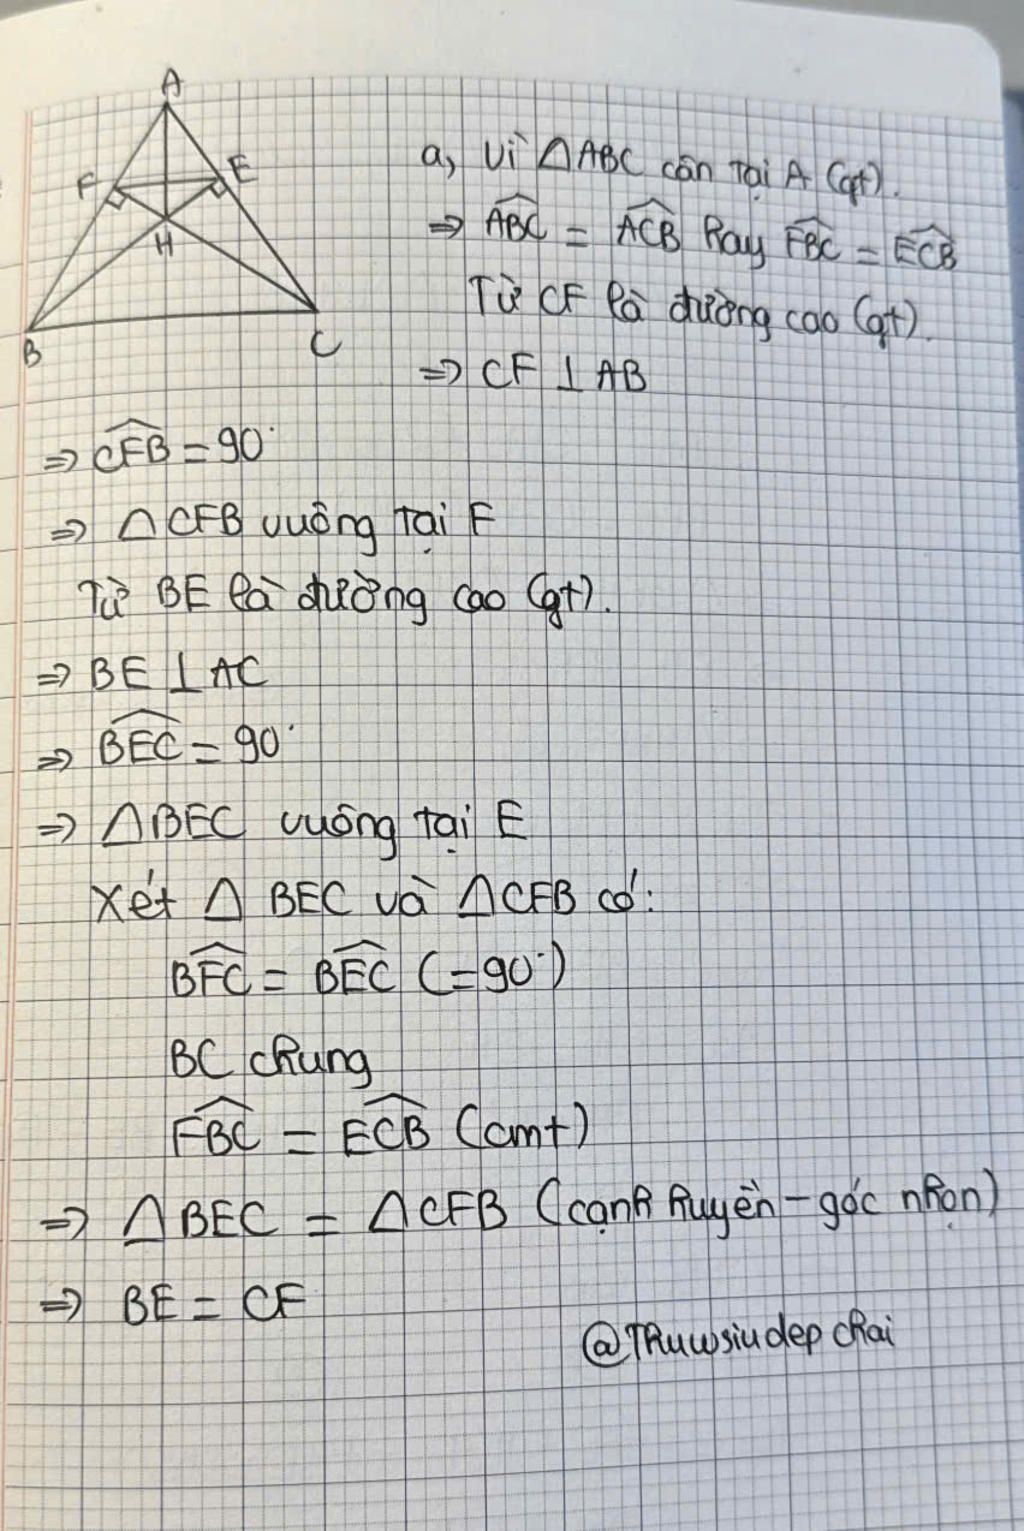 A
F
E
H
B
C
a, Vì △ABC cân tại A (gt).
⇒ \widehat{ABC} = \widehat{ACB} hay \widehat{FBC} = \widehat{ECB}
Từ CF là đường cao (gt).
⇒ CF ⊥ AB
⇒ \widehat{CFB} = 90°
⇒ △CFB vuông tại F
Từ BE là đường cao (gt).
⇒ BE ⊥ AC
⇒ \widehat{BEC} = 90°
⇒ △BEC vuông tại E
Xét △ BEC và △CFB có:
\widehat{BFC} = \widehat{BEC} (=90°)
BC chung
\widehat{FBC} = \widehat{ECB} (cmt)
⇒ △BEC = △CFB (cạnh huyền - góc nhọn)
⇒ BE = CF
@Thuwsiudep chai